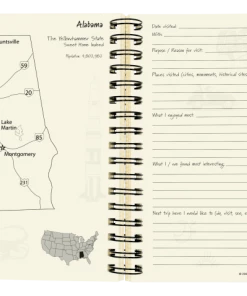 Alabama
The Yellowhammer State
Sweet Home Alabama
Huntsville
59
20
Lake
Martin
85
Montgomery
231
Date visited
With
Purpose / Reason for visit
Places visited (cities, monuments, historical sites
What I enjoyed most
What I / we found most interesting
Next trip here I would like to (do, visit, see,